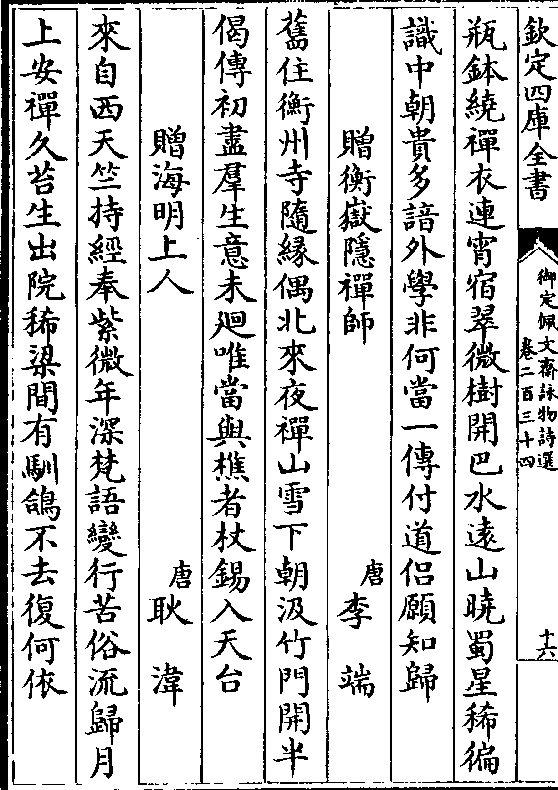 欽定四庫全書
御定佩文齋詠物詩選
卷二百三十四
十六
瓶鉢繞禪衣連宵宿翠微樹開巴水遠山曉蜀星稀徧
識中朝貴多諳外學非何當一傳付道侶願知歸
贈衡嶽隱禪師 唐 李端
舊住衡州寺隨緣偶北來夜禪山雪下朝汲竹門開半
偈傳初盡羣生意未廻唯當與樵者杖錫入天台
贈海明上人 唐 耿湋
來自西天竺持經奉紫微年深梵語變行苦俗流歸月
上安禪久苔生出院稀梁間有馴鴿不去復何依